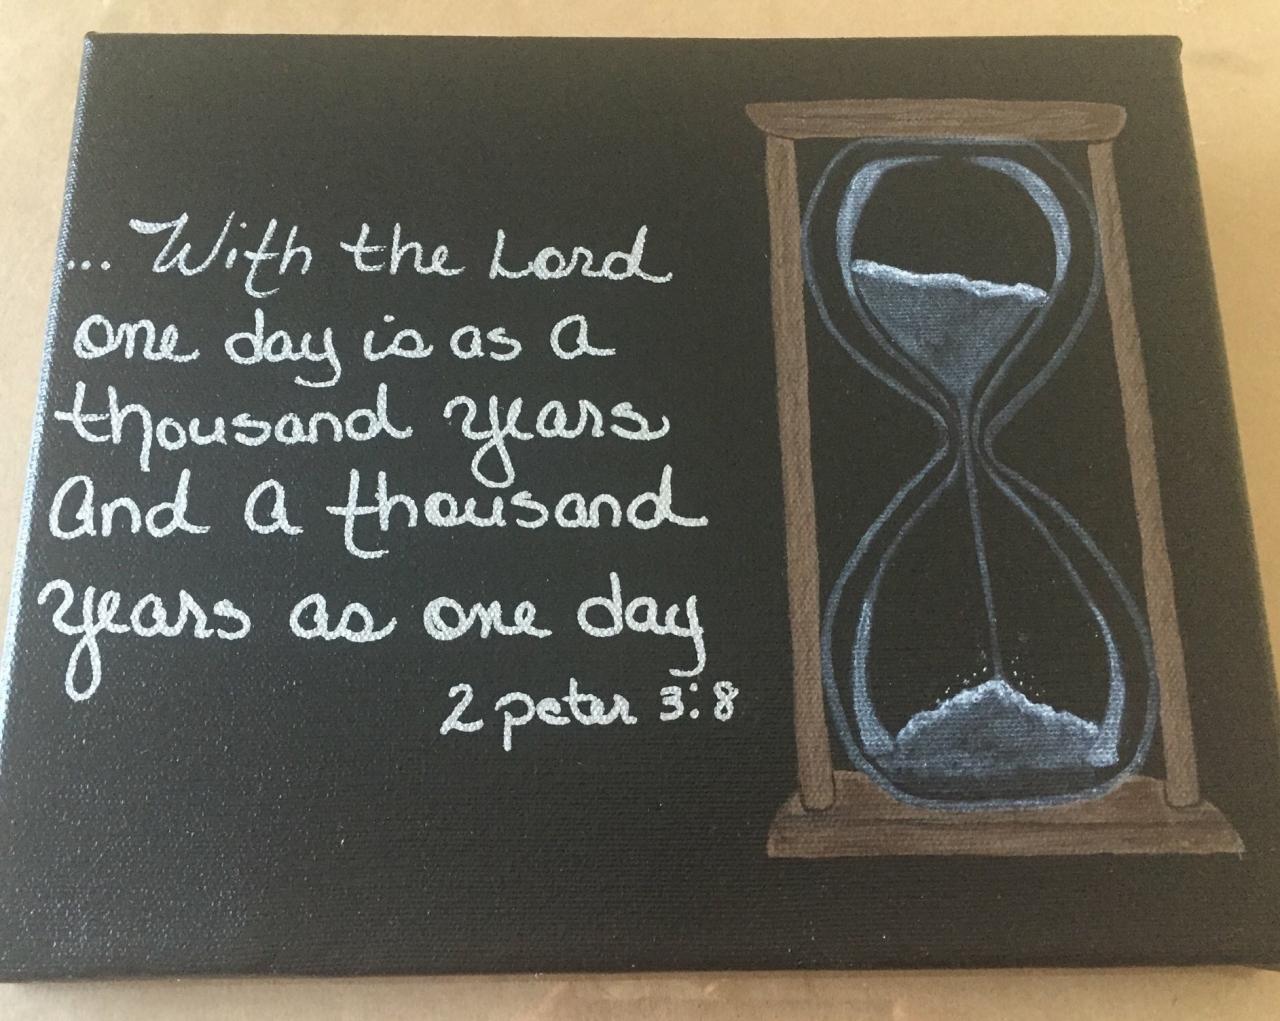 ... With the Lord
one day is as a
thousand years
And a thousand
years as one day
2 peter 3:8